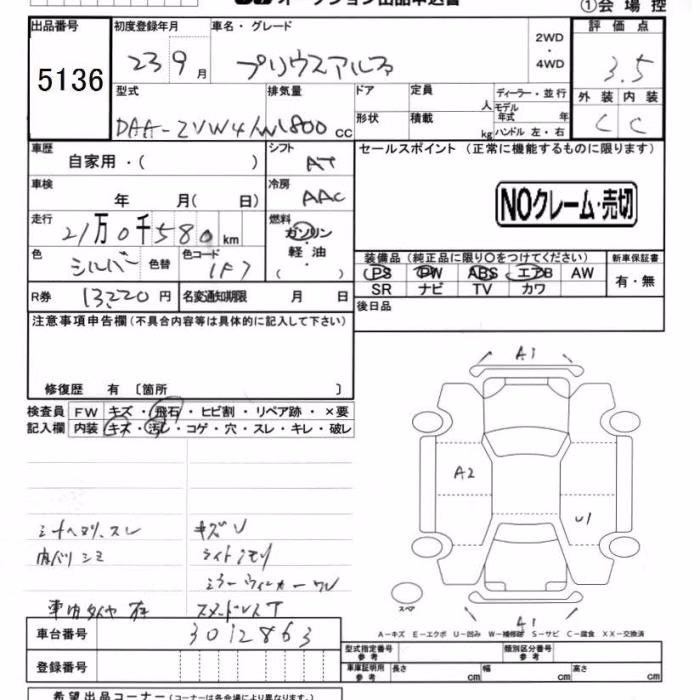 オークション出品申込書
①会場控
出品番号 初度登録年月 車名・グレード 2WD・4WD 評価点
5136 23 9月 プリウスアルファ 3.5
型式 排気量 ドア 定員 人 ディーラー・並行 外装 内装
モデル年式 年
DAA-ZVW41W 1800cc 形状 積載 kg ハンドル 左・右 C C
車歴 自家用・( ) シフト AT セールスポイント (正常に機能するものに限ります)
車検 年 月( 日) 冷房 AAC
NOクレーム・売切
走行 21万0千580km 燃料 ガソリン・軽油・( )
色 シルバー 色替 色コード 1F7
装備品 (純正品に限り○をつけてください) 新車保証書
PS PW ABS エアB AW 有・無
SR ナビ TV カワ
R券 13220円 名変通知期限 月 日 後日品
注意事項申告欄(不具合内容等は具体的に記入して下さい)
修復歴 有 〔箇所 〕
検査員記入欄 FW キズ・飛石・ヒビ割・リペア跡・×要
内装 キズ・汚レ・コゲ・穴・スレ・キレ・破レ
A1
A2
U1
スペア
A1
シートヘタリ、スレ キズU
内バリ シミ ライトクモリ
ミラーウィンカーワレ
車内タイヤ 有 スタッドレスT
A-キズ E-エクボ U-凹み W-補修跡 S-サビ C-腐食 XX-交換済
車台番号 3012863
型式指定番号 類別区分番号
登録番号 車庫証明用参考 長さ cm 幅 cm 高さ cm
希望出品コーナー(コーナーは各会場により異なります。)